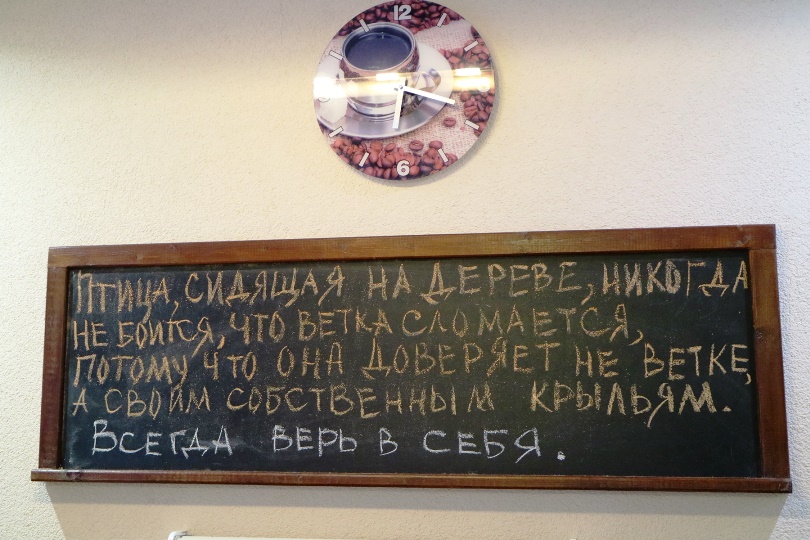 12
6
Птица, сидящая на дереве, никогда
не боится, что ветка сломается,
потому что она доверяет не ветке,
а своим собственным крыльям.
Всегда верь в себя.